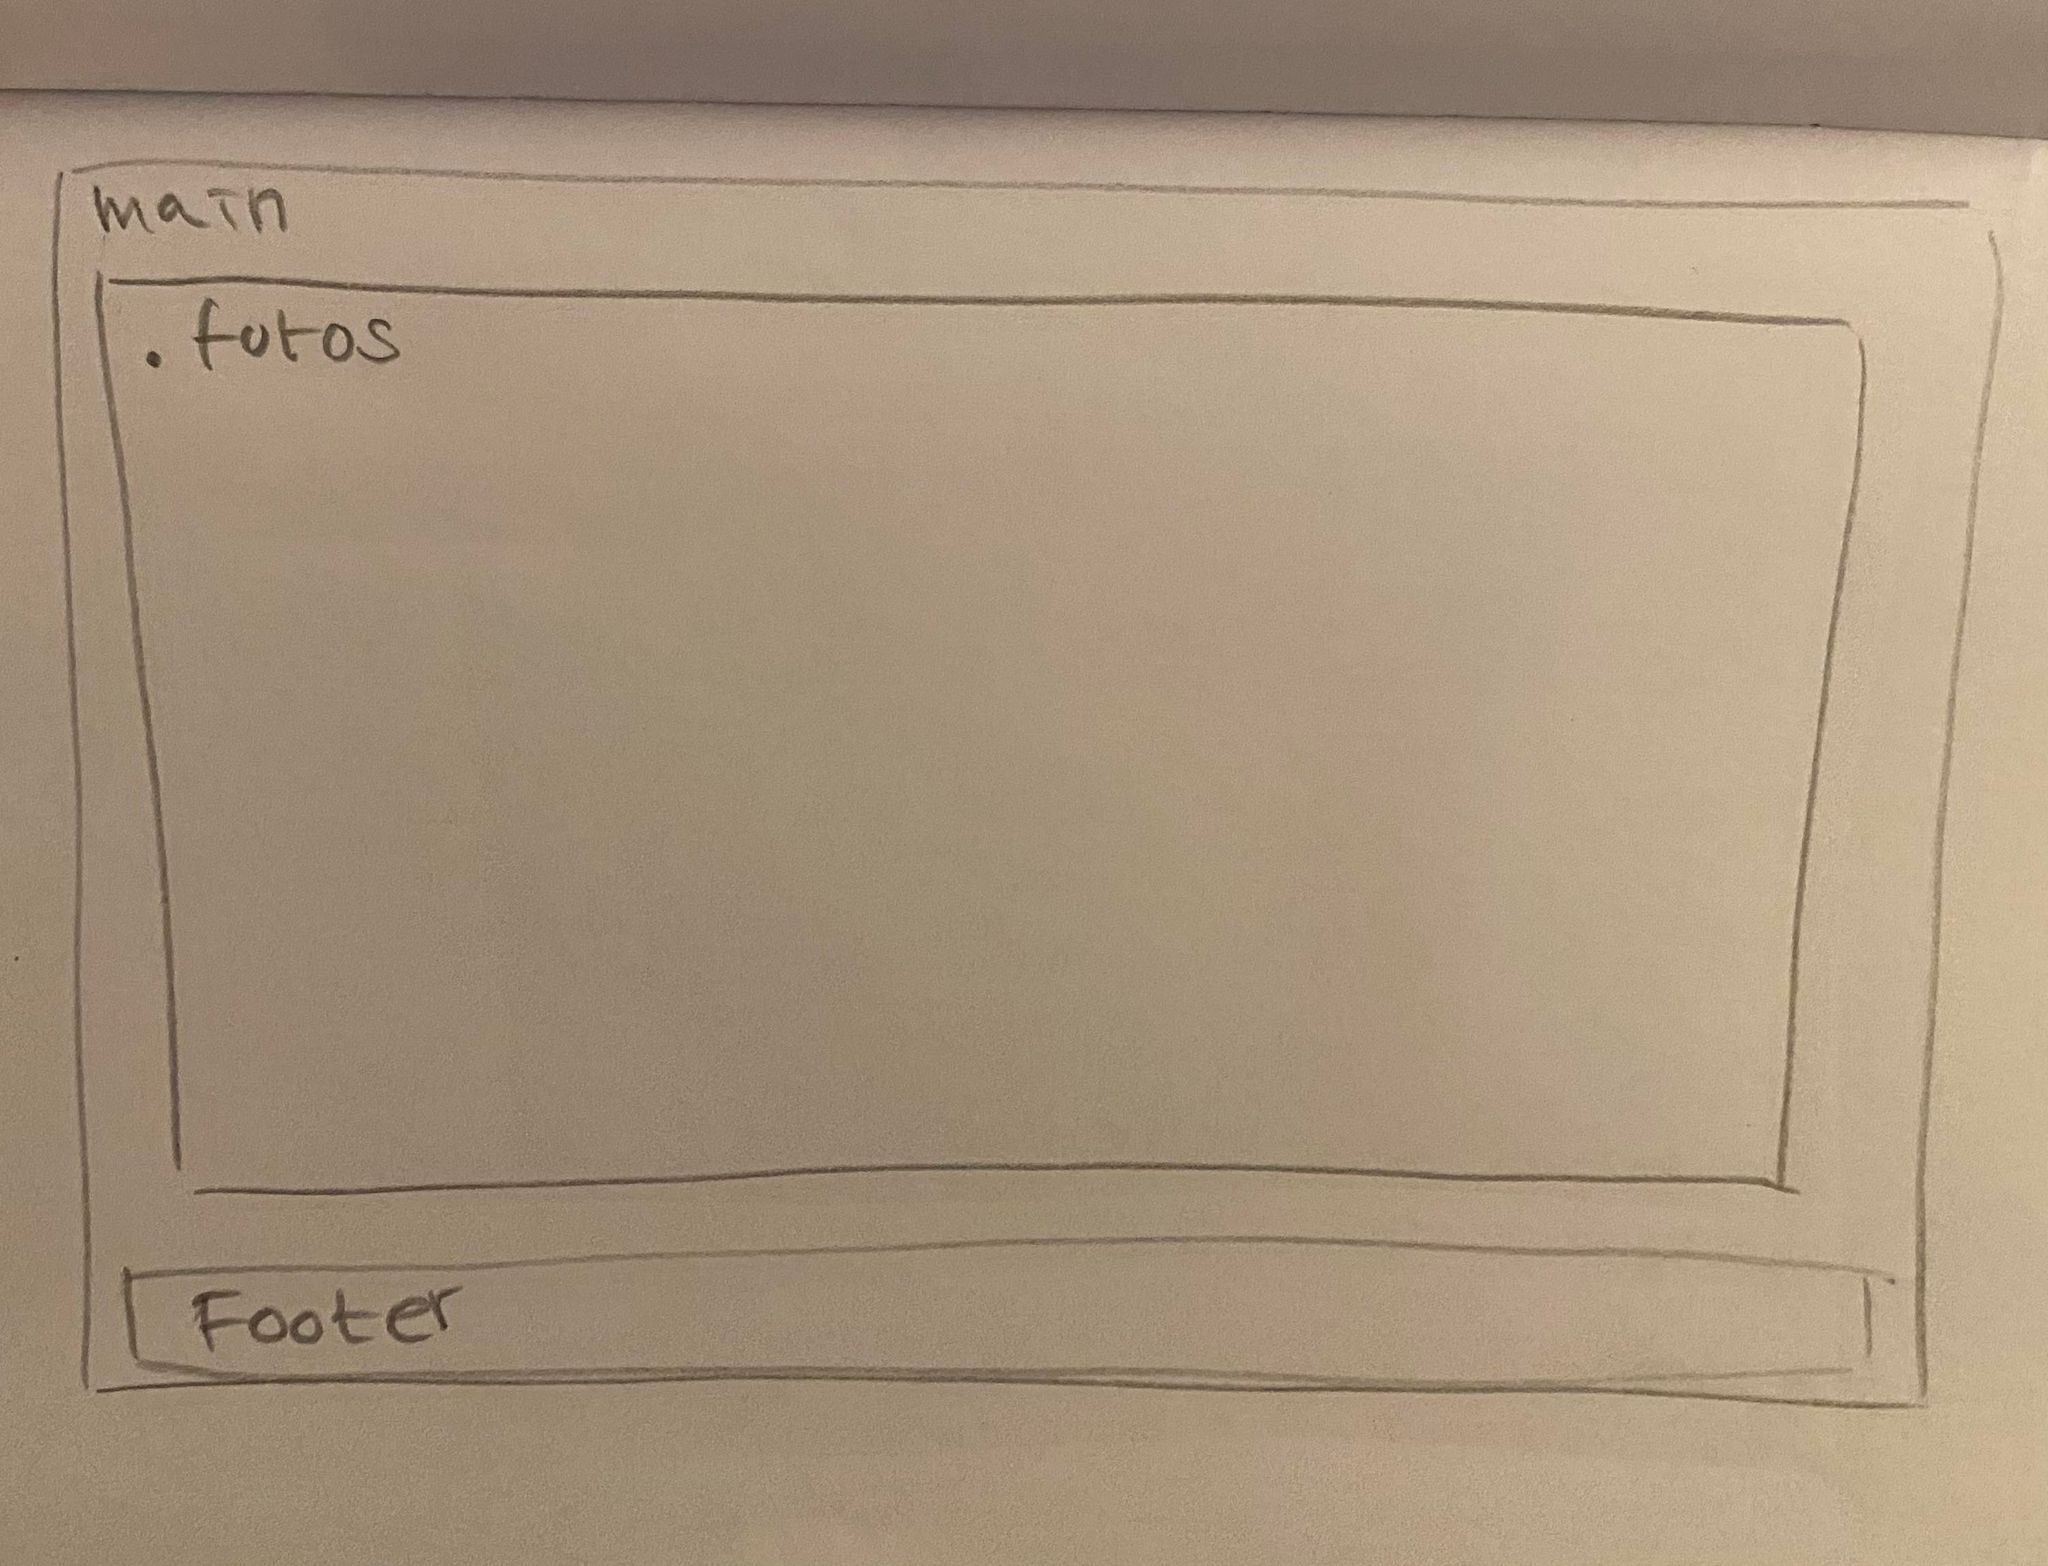 main
. fotos
Footer